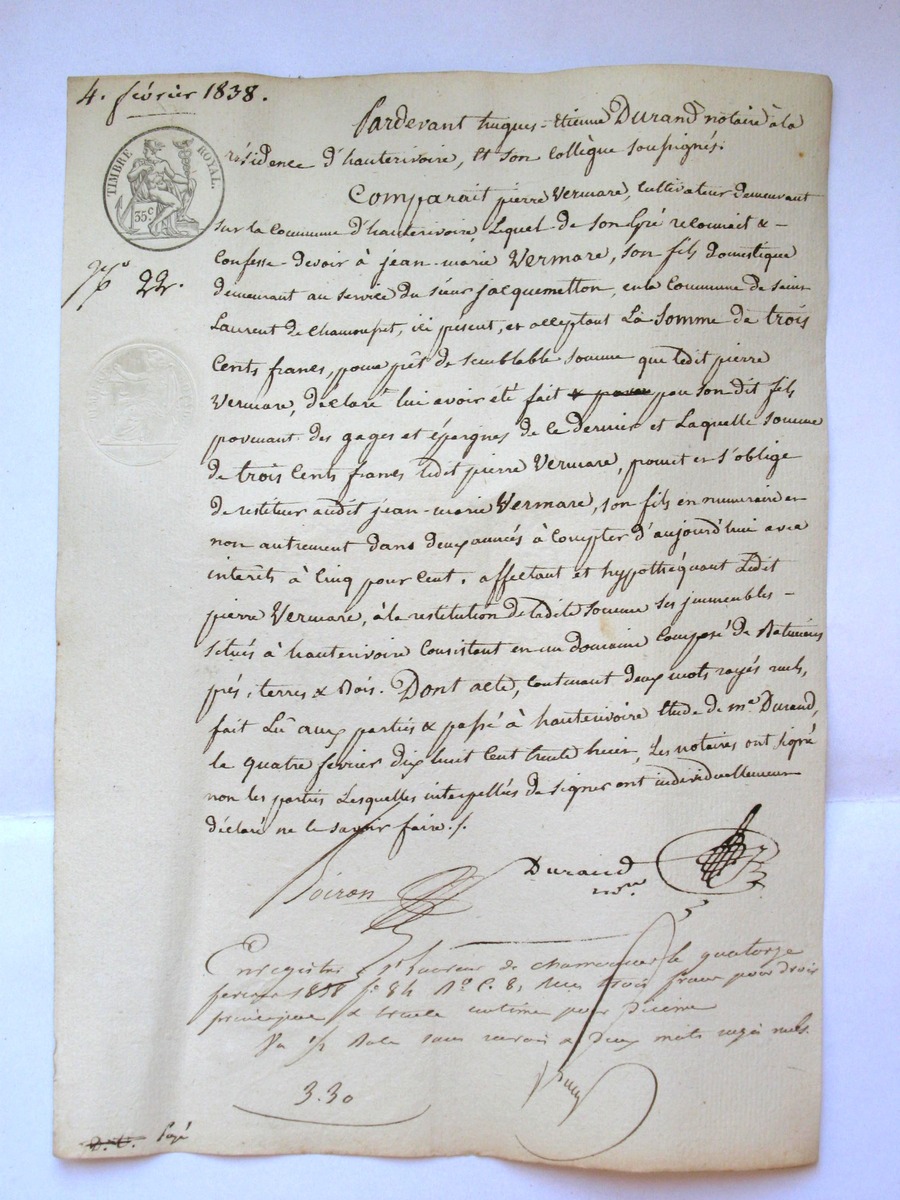 4. février 1838.
TIMBRE ROYAL.
35 c
22.
Pardevant hugues-Etienne Durand notaire à la
résidence d'hauterivoire, et son collègue soussignés.
Comparait pierre Vermare, Cultivateur demeurant
sur la Commune d'hauterivoire, Lequel de son Gré reconnait &
Confesse devoir à jean-marie Vermare, son fils domestique
demeurant au service du sieur jacquemetton, en la Commune de saint
Laurent de chamousset, ici present, et acceptant La somme de trois
Cents francs, pour prêt de semblable somme que ledit pierre
Vermare, déclare lui avoir été fait par son dit fils
provenant des gages et épargnes de ce dernier et Laquelle somme
de trois Cents francs ledit pierre Vermare, promet et s'oblige
de restituer audit jean-marie Vermare, son fils en numeraire et
non autrement dans deux années à Compter d'aujourd'hui avec
interêts à Cinq pour Cent. affectant et hypothéquant Ledit
pierre Vermare, à la restitution de ladite somme ses immeubles -
situés à hauterivoire Consistant en un domaine Composé de Batiments
prés, terres & Bois. Dont acte, Contenant deux mots rayés nuls,
fait Lû aux parties & passé à hauterivoire Etude de me Durand,
le quatre fevrier dix huit Cent trente huit, Les notaires ont signé
non les parties Lesquelles interpellées de signer ont individuellement
déclaré ne le savoir faire ./.
Boiron
Durand
nre
Enregistré à St Laurent de chamousset le quatorze
fevrier 1838 fo 84 Ro C. 8, Reçu trois francs pour droit
principal & trente centimes pour Dixième
deux mots rayés nuls.
3.30
D. C. Payé